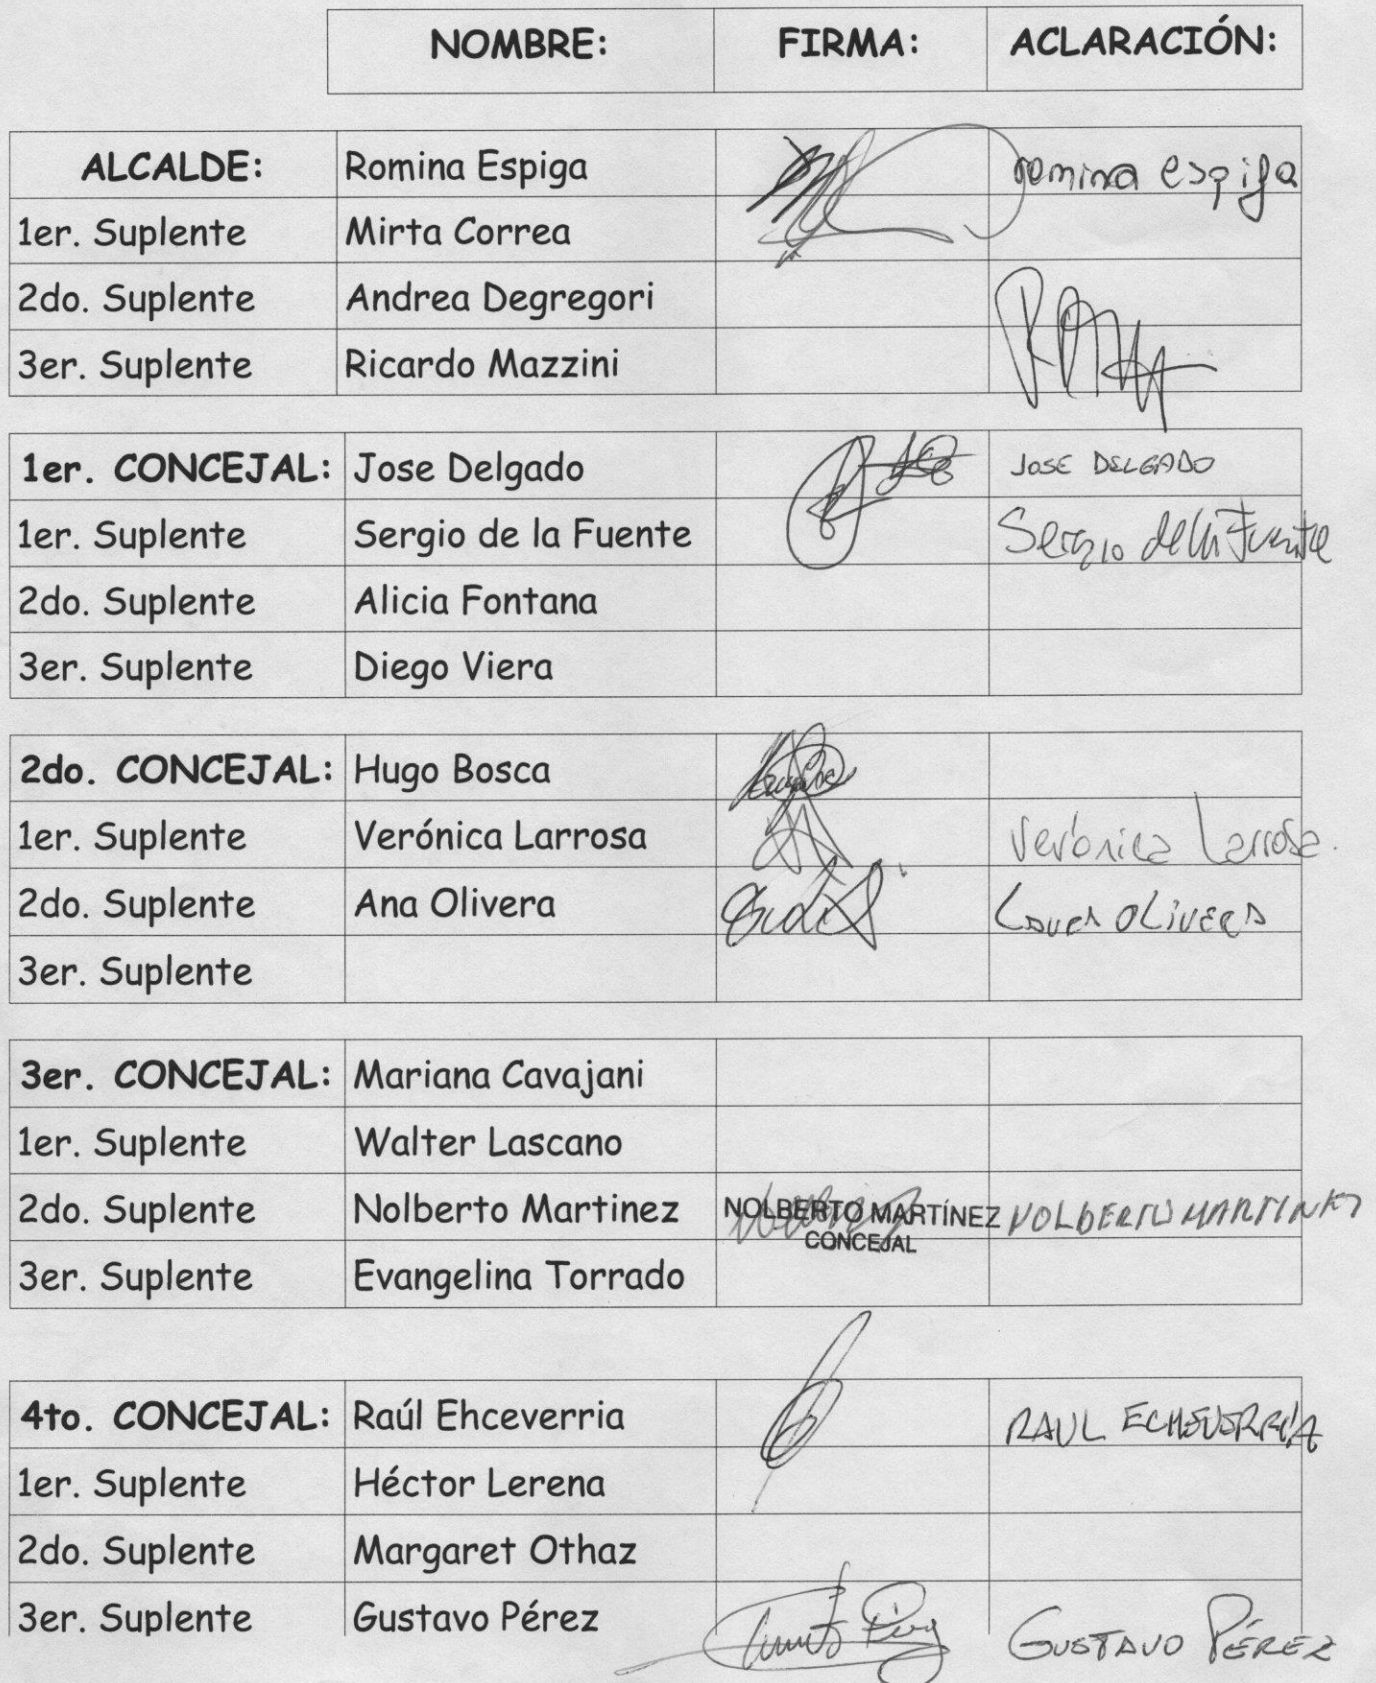 NOMBRE: FIRMA: ACLARACIÓN:
ALCALDE: Romina Espiga romina espiga
1er. Suplente Mirta Correa
2do. Suplente Andrea Degregori
3er. Suplente Ricardo Mazzini
1er. CONCEJAL: Jose Delgado JOSE DELGADO
1er. Suplente Sergio de la Fuente Sergio de la Fuente
2do. Suplente Alicia Fontana
3er. Suplente Diego Viera
2do. CONCEJAL: Hugo Bosca
1er. Suplente Verónica Larrosa Verónica Larrosa.
2do. Suplente Ana Olivera OLIVERA
3er. Suplente
3er. CONCEJAL: Mariana Cavajani
1er. Suplente Walter Lascano
2do. Suplente Nolberto Martinez NOLBERTO MARTÍNEZ NOLBERTO MARTINEZ
CONCEJAL
3er. Suplente Evangelina Torrado
4to. CONCEJAL: Raúl Ehceverria RAUL ECHEVERRÍA
1er. Suplente Héctor Lerena
2do. Suplente Margaret Othaz
3er. Suplente Gustavo Pérez GUSTAVO PÉREZ